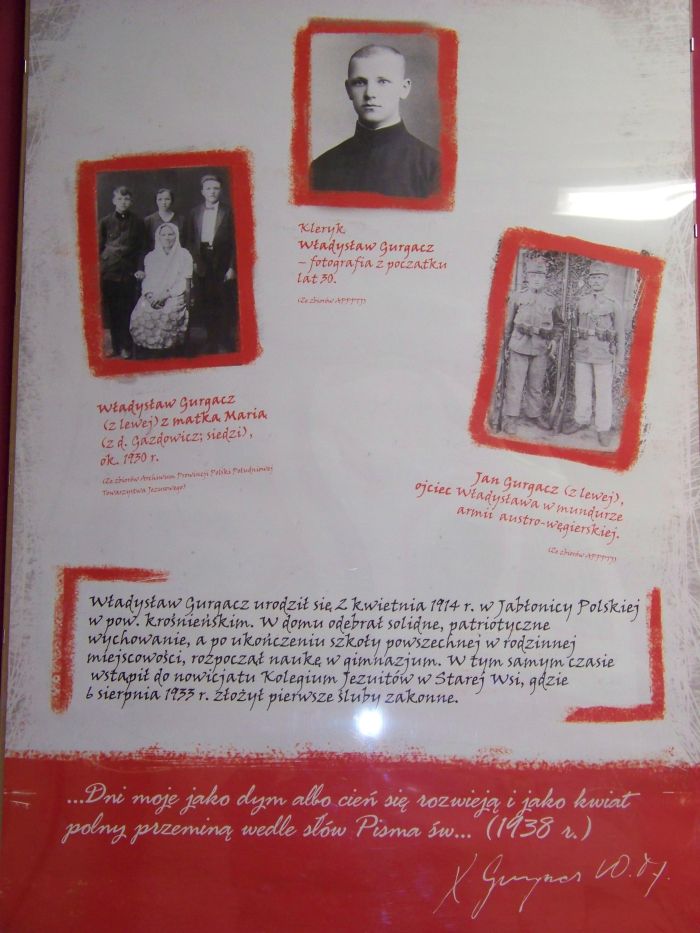 Kleryk
Władysław Gurgacz
– fotografia z początku
lat 30.
(Ze zbiorów APPPTJ)
Władysław Gurgacz
(z lewej) z matką Marią
(z d. Gazdowicz; siedzi),
ok. 1930 r.
(Ze zbiorów Archiwum Prowincji Polski Południowej
Towarzystwa Jezusowego)
Jan Gurgacz (z lewej),
ojciec Władysława w mundurze
armii austro-węgierskiej.
(Ze zbiorów APPPTJ)
Władysław Gurgacz urodził się 2 kwietnia 1914 r. w Jabłonicy Polskiej
w pow. krośnieńskim. W domu odebrał solidne, patriotyczne
wychowanie, a po ukończeniu szkoły powszechnej w rodzinnej
miejscowości, rozpoczął naukę w gimnazjum. W tym samym czasie
wstąpił do nowicjatu Kolegium Jezuitów w Starej Wsi, gdzie
6 sierpnia 1933 r. złożył pierwsze śluby zakonne.
...Dni moje jako dym albo cień się rozwieją i jako kwiat
polny przeminą wedle słów Pisma św... (1938 r.)
X Gurgacz